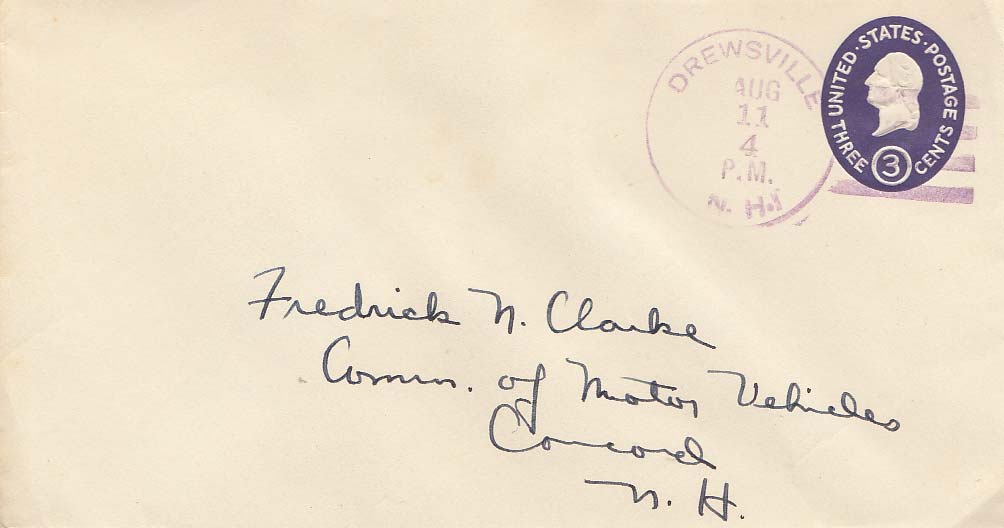 DREWSVILLE
AUG
11
4
P.M.
N. H.
UNITED·STATES·POSTAGE
THREE 3 CENTS
Fredrick N. Clarke
Comm. of Motor Vehicles
Concord
N. H.